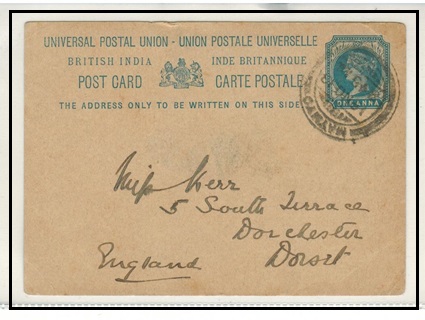 UNIVERSAL POSTAL UNION - UNION POSTALE UNIVERSELLE
BRITISH INDIA INDE BRITANNIQUE
POST CARD CARTE POSTALE
THE ADDRESS ONLY TO BE WRITTEN ON THIS SIDE
ONE ANNA
MAYMYO
Miss Kerr
5 South Terrace
Dorchester
Dorset
England